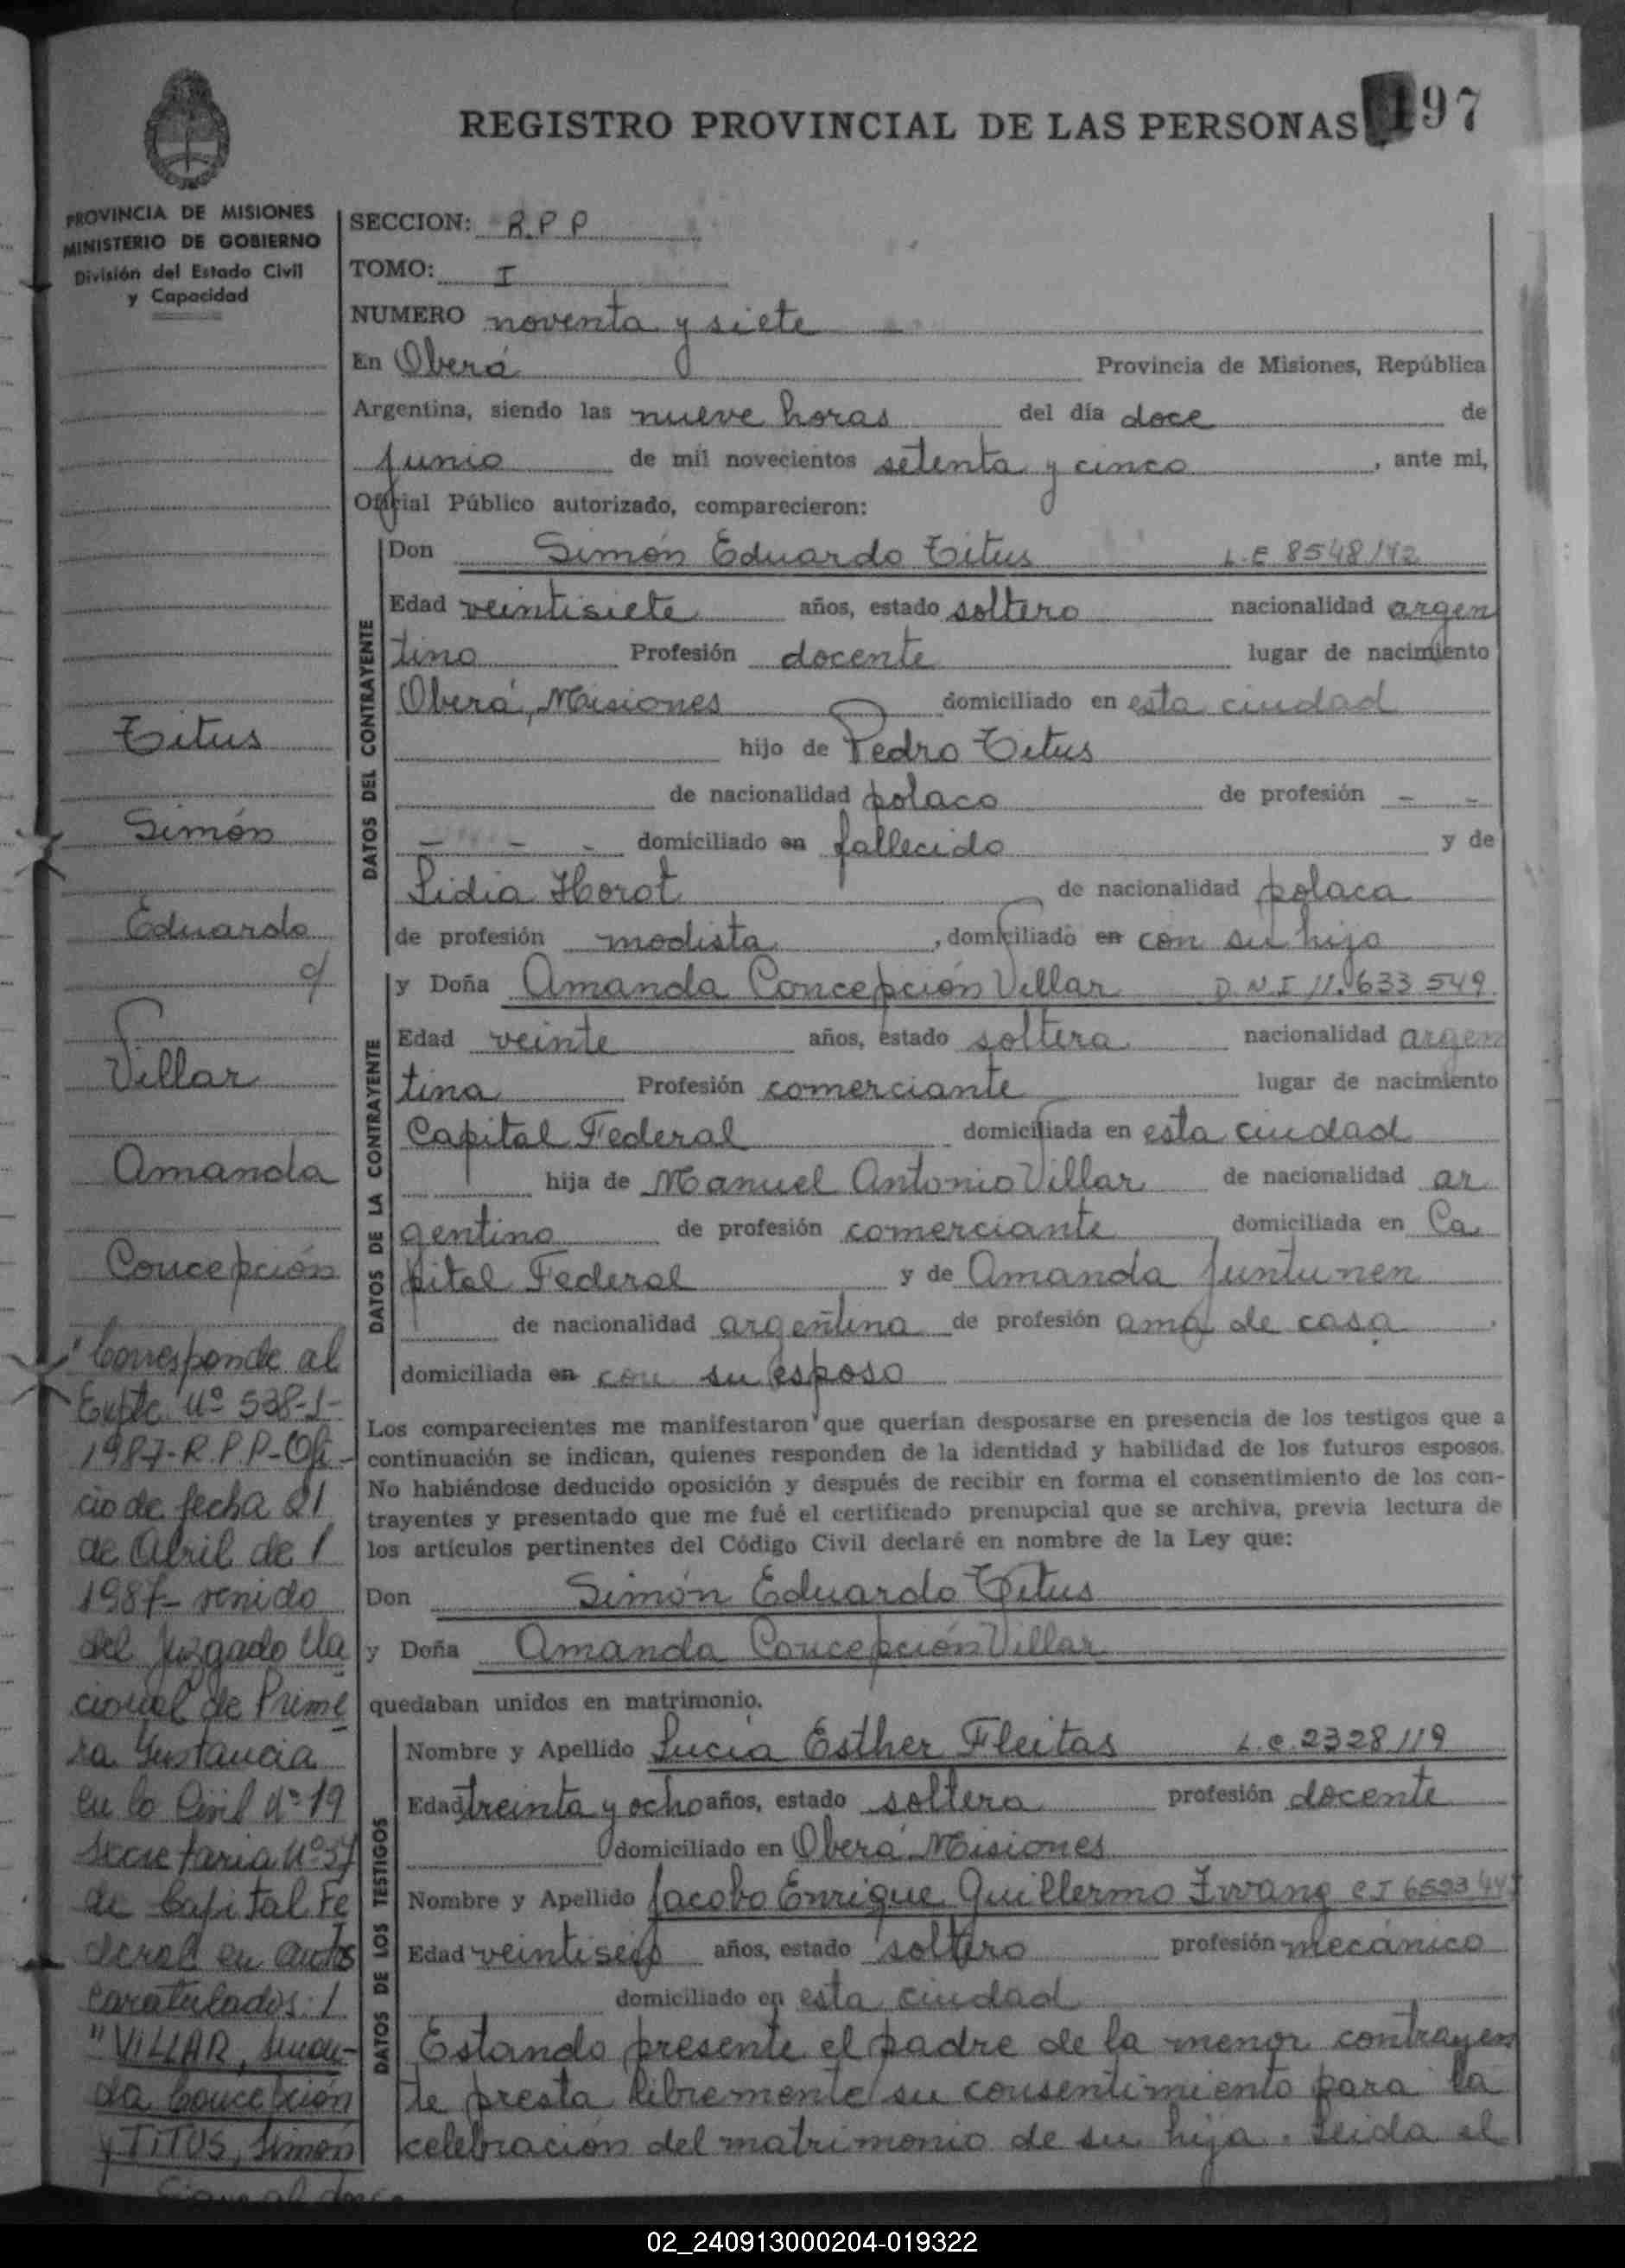 REGISTRO PROVINCIAL DE LAS PERSONAS
197
PROVINCIA DE MISIONES
MINISTERIO DE GOBIERNO
División del Estado Civil
y Capacidad
SECCION: R.P.P
TOMO: I
NUMERO noventa y siete
En Oberá Provincia de Misiones, República
Argentina, siendo las nueve horas del día doce de
junio de mil novecientos setenta y cinco, ante mi,
Oficial Público autorizado, comparecieron:
DATOS DEL CONTRAYENTE
Don Simón Eduardo Titus L.E 8548/42
Edad veintisiete años, estado soltero nacionalidad argen
tino Profesión docente lugar de nacimiento
Oberá, Misiones domiciliado en esta ciudad
hijo de Pedro Titus
de nacionalidad polaco de profesión - -
- - - domiciliado en fallecido y de
Lidia Horot de nacionalidad polaca
de profesión modista, domiciliado en con su hijo
DATOS DE LA CONTRAYENTE
y Doña Amanda Concepción Villar D.N.I 11.633 549
Edad veinte años, estado soltera nacionalidad argen
tina Profesión comerciante lugar de nacimiento
Capital Federal domiciliada en esta ciudad
hija de Manuel Antonio Villar de nacionalidad ar
gentino de profesión comerciante domiciliada en Ca
pital Federal y de Amanda Juntunen
de nacionalidad argentina de profesión ama de casa.
domiciliada en con su esposo
Los comparecientes me manifestaron que querían desposarse en presencia de los testigos que a
continuación se indican, quienes responden de la identidad y habilidad de los futuros esposos.
No habiéndose deducido oposición y después de recibir en forma el consentimiento de los con-
trayentes y presentado que me fué el certificado prenupcial que se archiva, previa lectura de
los artículos pertinentes del Código Civil declaré en nombre de la Ley que:
Don Simón Eduardo Titus
y Doña Amanda Concepción Villar
quedaban unidos en matrimonio.
DATOS DE LOS TESTIGOS
Nombre y Apellido Lucía Esther Fleitas L.C. 2328119
Edad treinta y ocho años, estado soltera profesión docente
domiciliado en Oberá Misiones
Nombre y Apellido Jacobo Enrique Guillermo CI
Edad veintiseis años, estado soltero profesión mecánico
domiciliado en esta ciudad
Estando presente el padre de la menor contrayen
te presta libremente su consentimiento para la
celebración del matrimonio de su hija. Leida el
Titus
Simón
Eduardo
c/
Villar
Amanda
Concepción
Corresponde al
Expte Nº 538-J-
1987-R.P.P-Ofi-
cio de fecha 21
de Abril de
1987- venido
del Juzgado Na
cional de Prime
ra Instancia
en lo Civil Nº 19
Secretaria Nº 37
de Capital Fe
deral en autos
caratulados:
"VILLAR, Aman-
da Concepción
y TITUS, Simón
Sigue al dorso
02_240913000204-019322